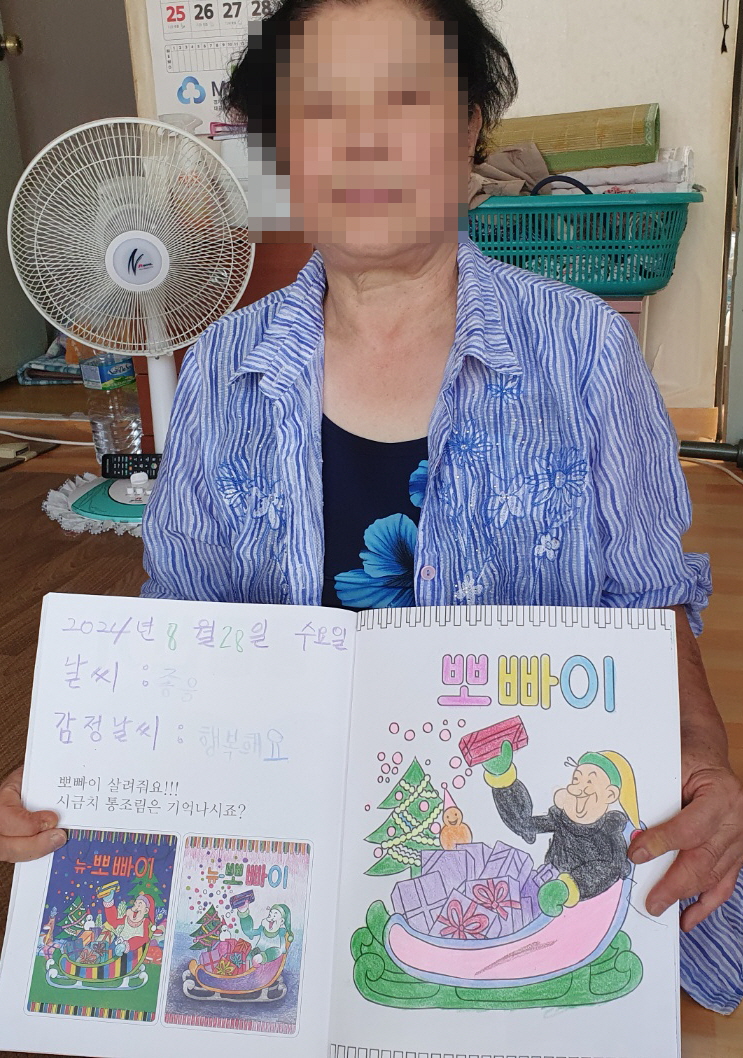 25 26 27 28
2024년 8월 28일 수요일
날씨 : 좋음
감정날씨 : 행복해요
뽀빠이 살려줘요!!!
시금치 통조림은 기억나시죠?
뉴-뽀빠이
뉴-뽀빠이
뽀빠이